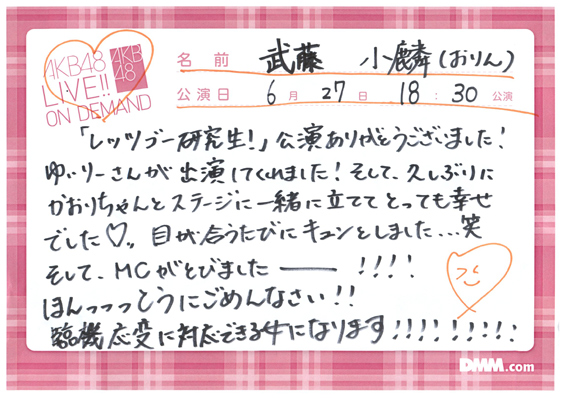 AKB48
LIVE!!
ON DEMAND
AKB
48
名前 武藤 小麟(おりん)
公演日 6月27日 18:30公演
「レッツゴー研究生!」公演ありがとうございました!
ゆいりーさんが出演してくれました!そして、久しぶりに
かおりちゃんとステージに一緒に立ててとっても幸せ
でした♡。目が合うたびにキュンとしました...笑
そして、MCがとびました―― !!!!
ほんっっっとうにごめんなさい!!
臨機応変に対応できる牛になります!!!!!!!!
DMM.com